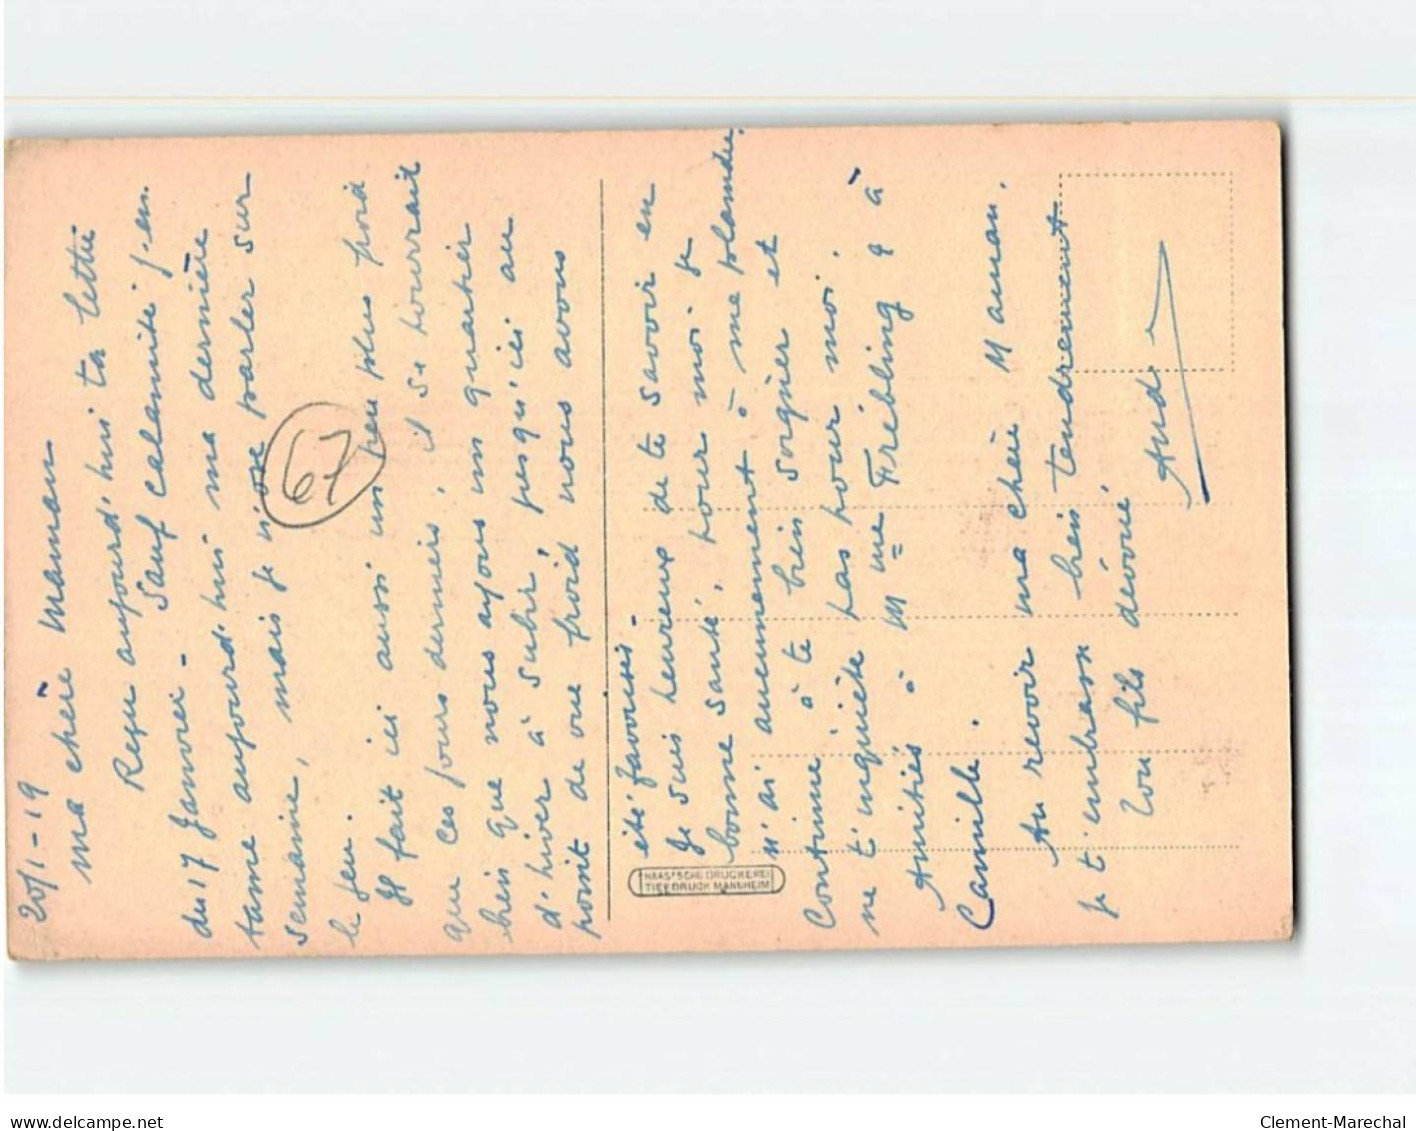 20/1-19
Ma chère Maman
Reçu aujourd'hui ta lettre
du 17 Janvier - Sauf calamité j'en-
tame aujourd'hui ma dernière
semaine, mais je n'ose parler sur
le feu.
Il fait ici aussi un peu plus froid
que ces jours derniers, il se pourrait
bien que nous ayons un quartier
d'hiver à subir, jusqu'ici au
point de vue froid nous avons
été favorisés -
Je suis heureux de te savoir en
bonne santé, pour moi je
n'ai aucunement à me plaindre,
Continue à te bien soigner et
ne t'inquiète pas pour moi.
Amitiés à Mme Freibling & à
Camille.
Au revoir ma chère Maman.
Je t'embrasse bien tendrement
Ton fils dévoué,
André
67
HAAS'SCHE DRUCKEREI
TIEFDRUCK MANNHEIM
delcampe.net
Clement-Marechal